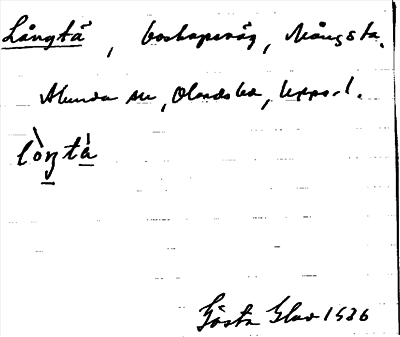 Långtå, boskapsväg, Mångsta.
Alunda sn, Olands hd, Uppsl.
lòŋtá
Gösta Elav 1936